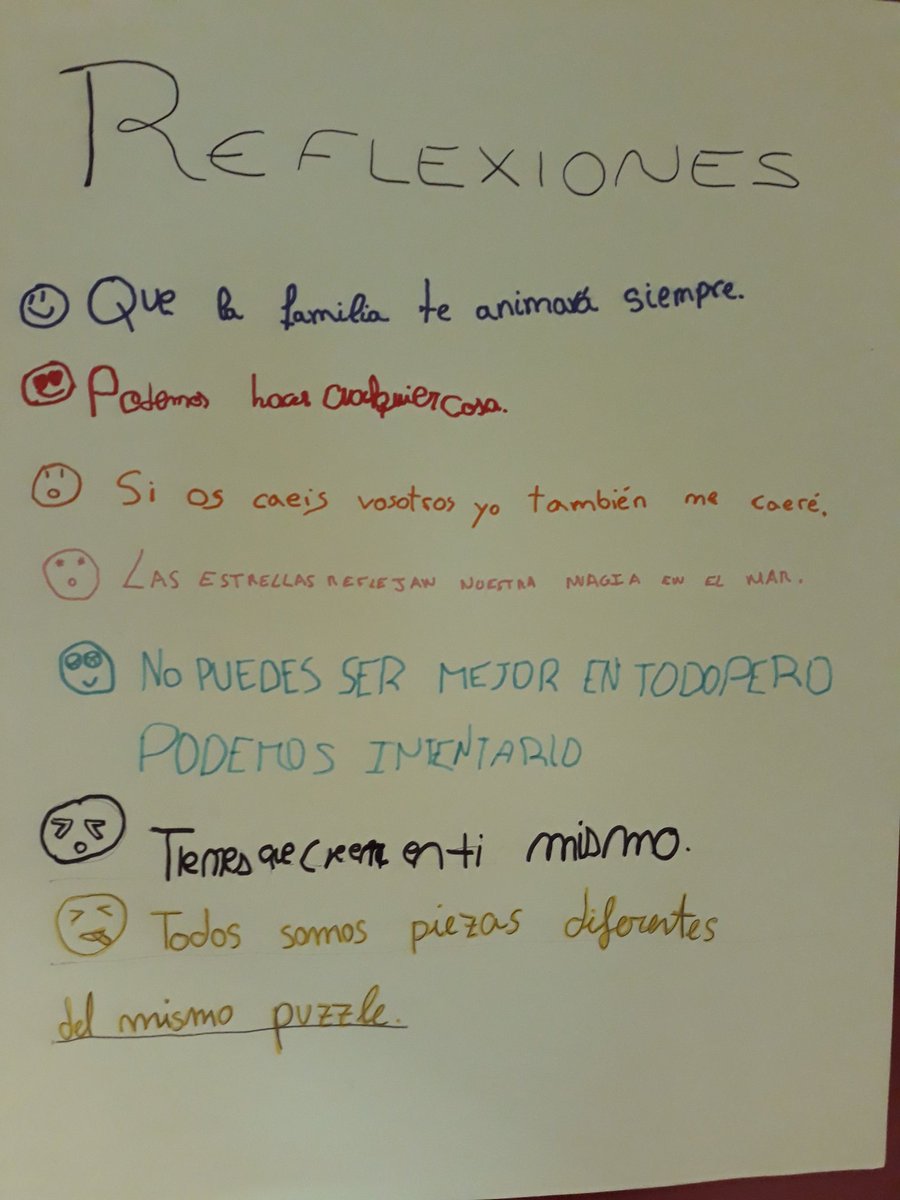 REFLEXIONES
Que la familia te animará siempre.
Podemos hacer cualquier cosa.
Si os caeis vosotros yo también me caeré.
LAS ESTRELLAS REFLEJAN NUESTRA MAGIA EN EL MAR.
NO PUEDES SER MEJOR EN TODO PERO
PODEMOS INTENTARLO
Tienes que creer en ti mismo.
Todos somos piezas diferentes
del mismo puzzle.